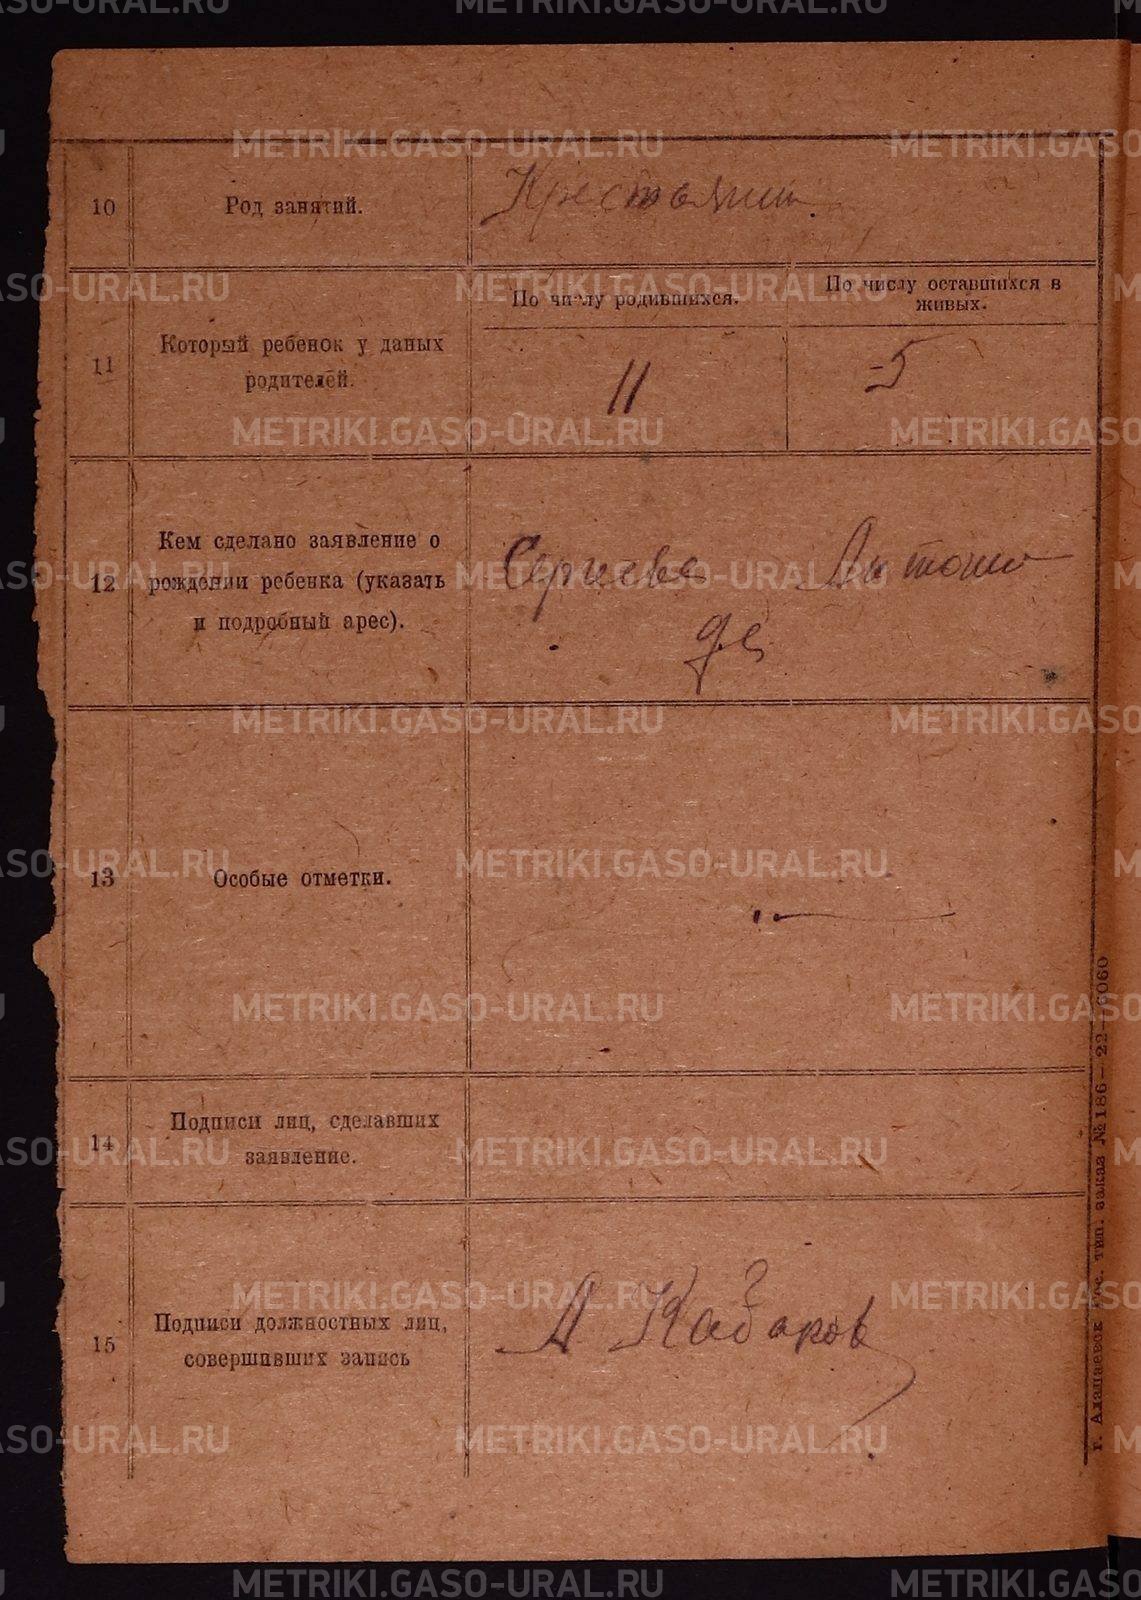 10
Род занятий.
Крестьянин
11
Который ребенок у даных
родителей.
По числу родившихся.
11
По числу оставшихся в
живых.
5
12
Кем сделано заявление о
рождении ребенка (указать
и подробный арес).
Сергеева
13
Особые отметки.
14
Подписи лиц, сделавших
заявление.
15
Подписи должностных лиц,
совершивших запись
А Кабаков
г. Алапаевск Гос. тип. заказ № 186—22—6060
METRIKI.GASO-URAL.RU